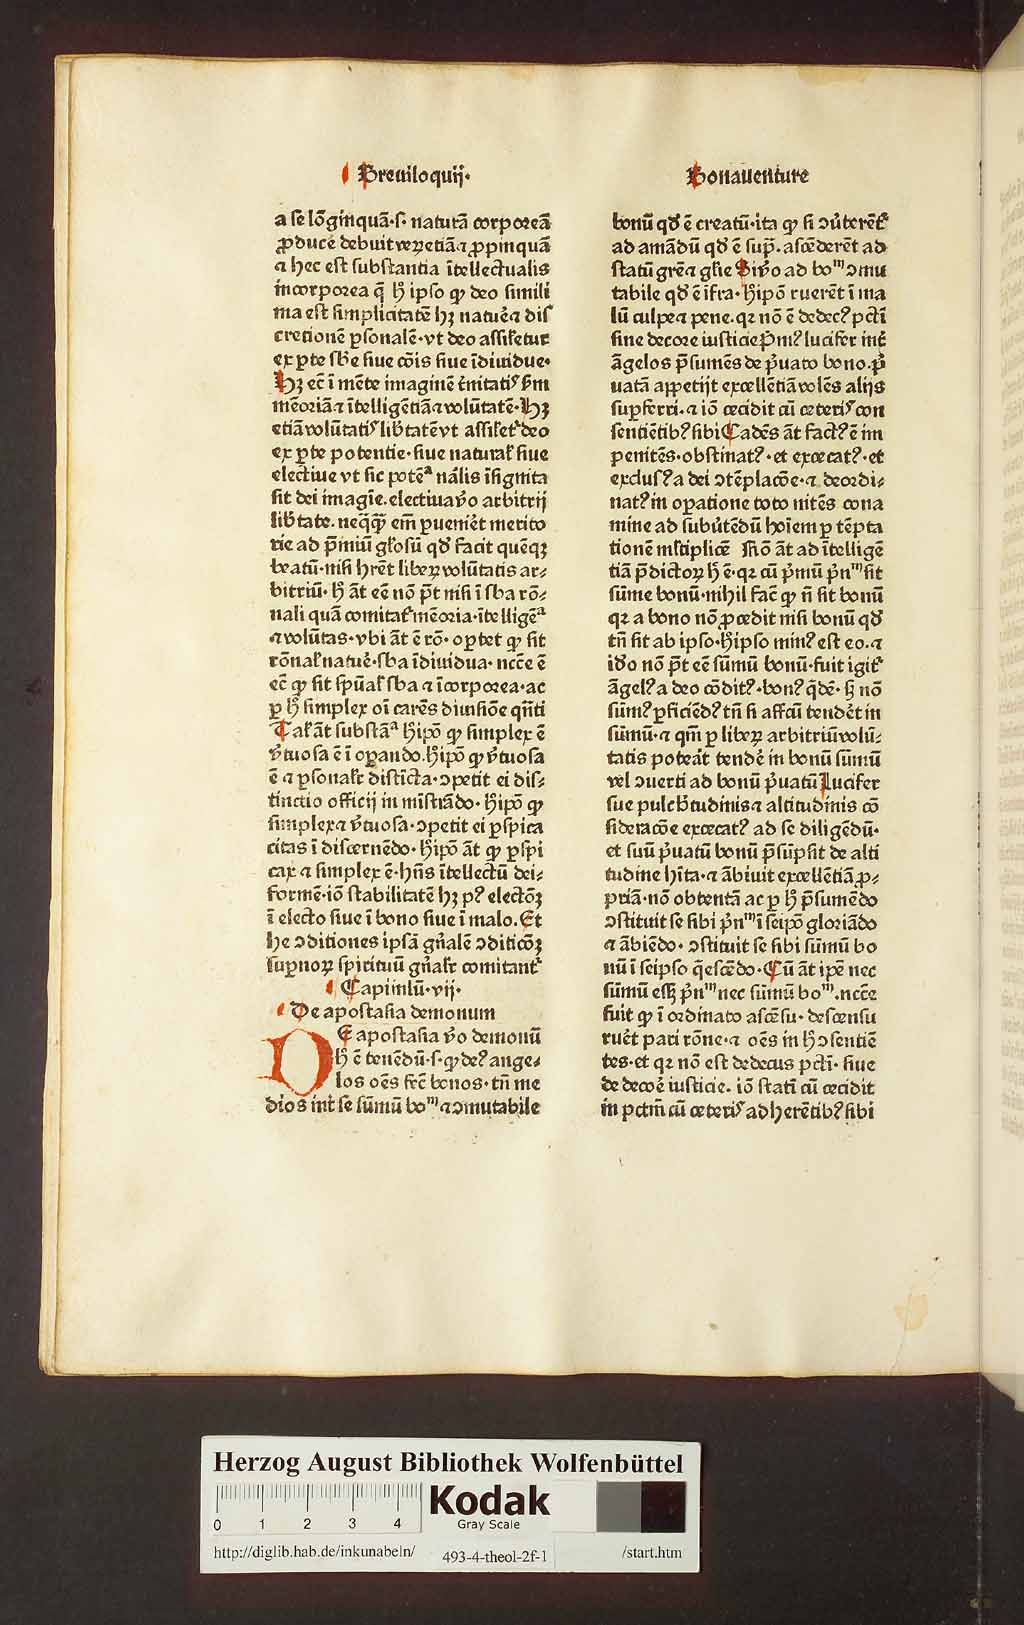 Breuiloquij.
a se lōginquā·s· naturā corporeā
ꝓducē debuit veꝝetiā ⁊ ꝓpinquā
⁊ hec est substantia ītellectualis
incorporea q̄ hͦ ipso ꝙ deo simili
ma est simplicitatē hꝫ naturē ⁊ dis
cretionē ꝑsonalē·vt deo assiletur
ex ꝑte sb̄e siue cōis siue īdiuidue·
Hꝫ ec̄ ī mēte imaginē t̄nitatis
mēoriā ⁊ ītelligētiā ⁊ volūtatē·Hꝫ
etiā volūtatis lib̄tatē vt assilet᷑ deo
ex ꝑte potentie·siue natural siue
electiue vt sic potēᵃ nālis īsignita
sit dei imagīe.electiua v̄o arbitrij
lib̄tate.neq̄q̄ em̄ ꝑueniēt merito
rie ad p̄miū gl̄osū qd̓ facit quēqꝫ
beatū·nisi hrēt libeꝝ volūtatis ar⸗
bitriū· hͦ āt eē nō p̄t nisi ī sba rō⸗
nali quā comitat᷑ mēoria·ītelligēᵃ
⁊ volūtas·vbi āt ē rō· oꝑtet ꝙ sit
rōnal natuē·sba īdiuidua· nc̄ce ē
ec̄ ꝙ sit sp̄ual sba ⁊ īcorporea·ac
ꝑ hͦ simplex oī carēs diuisiōe qn̄ti
Tal āt substāᵃ hͦipō ꝙ simplex ē
v̄tuosa ē ī oꝑando.hͦipō ꝙ v̄tuosa
ē ⁊ ꝑsonalr distīcta·ↄpetit ei dis⸗
tinctio officij in mīstrādo· hͦipō ꝙ
simplex ⁊ v̄tuosa·ↄpetit ei ꝑspica
citas ī discernēdo· hͦipō āt ꝙ ꝑspi
cax ⁊ simplex ē· hn̄s ītellectū dei⸗
formē·iō stabilitatē hꝫ pꝰ electōꝫ
ī electo siue ī bono siue ī malo. Et
he ↄditiones ipsā gn̄alē ↄditicōꝫ
suꝑnoꝝ spirituū gn̄alr comitant᷑
Capitulū·vij·
De apostasia demonum
DE apostasia v̄o demonū
hͦ ē tenēdū·s·ꝙ deꝰ ange⸗
los oēs fec̄ bonos·tn̄ me
dios int̄ se sūmū boᵐ ⁊ ↄmutabile
Bonauenture
bonū qd̓ ē creatū·ita ꝙ si ↄu̓terēt᷑
ad amādū qd̓ ē sup̄. ascēderēt ad
statū grē ⁊ gl̄ie Si v̄o ad boᵐ ↄmu
tabile qd̓ ē īfra·hͦipō ruerēt ī ma
lū culpe ⁊ pene.qꝛ nō ē dedecꝰ pctī
sine decore iusticie Pᵐꝰ lucifer int̄
āgelos p̄sumēs de p̓uato bono.p̓
uatā appetijt excellētiā volēs alijs
suꝑferri.⁊ iō cecidit cū ceteris con
sentiētibꝰ sibi Cadēs āt factꝰ ē im
penitēs·obstinatꝰ·et excecatꝰ·et
exclusꝰ a dei ↄtēplacōe·⁊ deordi⸗
natꝰ in oꝑatione toto nitēs cona
mine ad subu̓tēdū hoīem ꝑ tēpta
tionē ml̄tiplicē Mō āt ad ītelligē
tiā p̄dictoꝝ hͦ ē·qꝛ cū p̓mū p̓nᵐ sit
sūme bonū·nihil fac̄ ꝙ n̄ sit bonū
qꝛ a bono nō ꝓcedit nisi bonū qd̓
tn̄ sit ab ipso·hͦipso minꝰ est eo.⁊
id̓o nō p̄t eē sūmū bonū·fuit igit᷑
āgelꝰ a deo cōditꝰ·bonꝰ q̄dē·sꝫ nō
sūmꝰ ꝑficiēdꝰ tn̄ si affc̄u tendēt in
sūmū·⁊ qm̄ ꝑ libeꝝ arbitriū volū⸗
tatis poteāt tendē in bonū sūmū
vel ↄuerti ad bonū p̓uatū Lucifer
sue pulcͪtudinis ⁊ altitudinis cō
sideracōe excecatꝰ ad se diligēdū·
et suū p̓uatū bonū p̄sūpsit de alti
tudine hīta·⁊ ābiuit excellētiā ꝓ⸗
priā·nō obtentā ac ꝑ hͦ p̄sumēdo
ↄstituit se sibi p̓nᵐ ī seipō gloriādo
⁊ ābiēdo· ↄstituit se sibi sūmū bo
nū ī seipso q̓escēdo·Cū āt ip̄e nec
sūmū eēt p̓nᵐ nec sūmū boᵐ.nc̄ce
fuit ꝙ ī ordinato ascēsu· descensu
ruēt pari rōne·⁊ oēs in hͦ ↄsentiē
tes·et qꝛ nō est dedecus pctī· siue
de decoē iusticie. iō statī cū cecidit
in pctm̄ cū ceteris adherētibꝰ sibi
Herzog August Bibliothek Wolfenbüttel
0 1 2 3 4
Kodak
Gray Scale
http://diglib.hab.de/inkunabeln/ 493-4-theol-2f-1 /start.htm